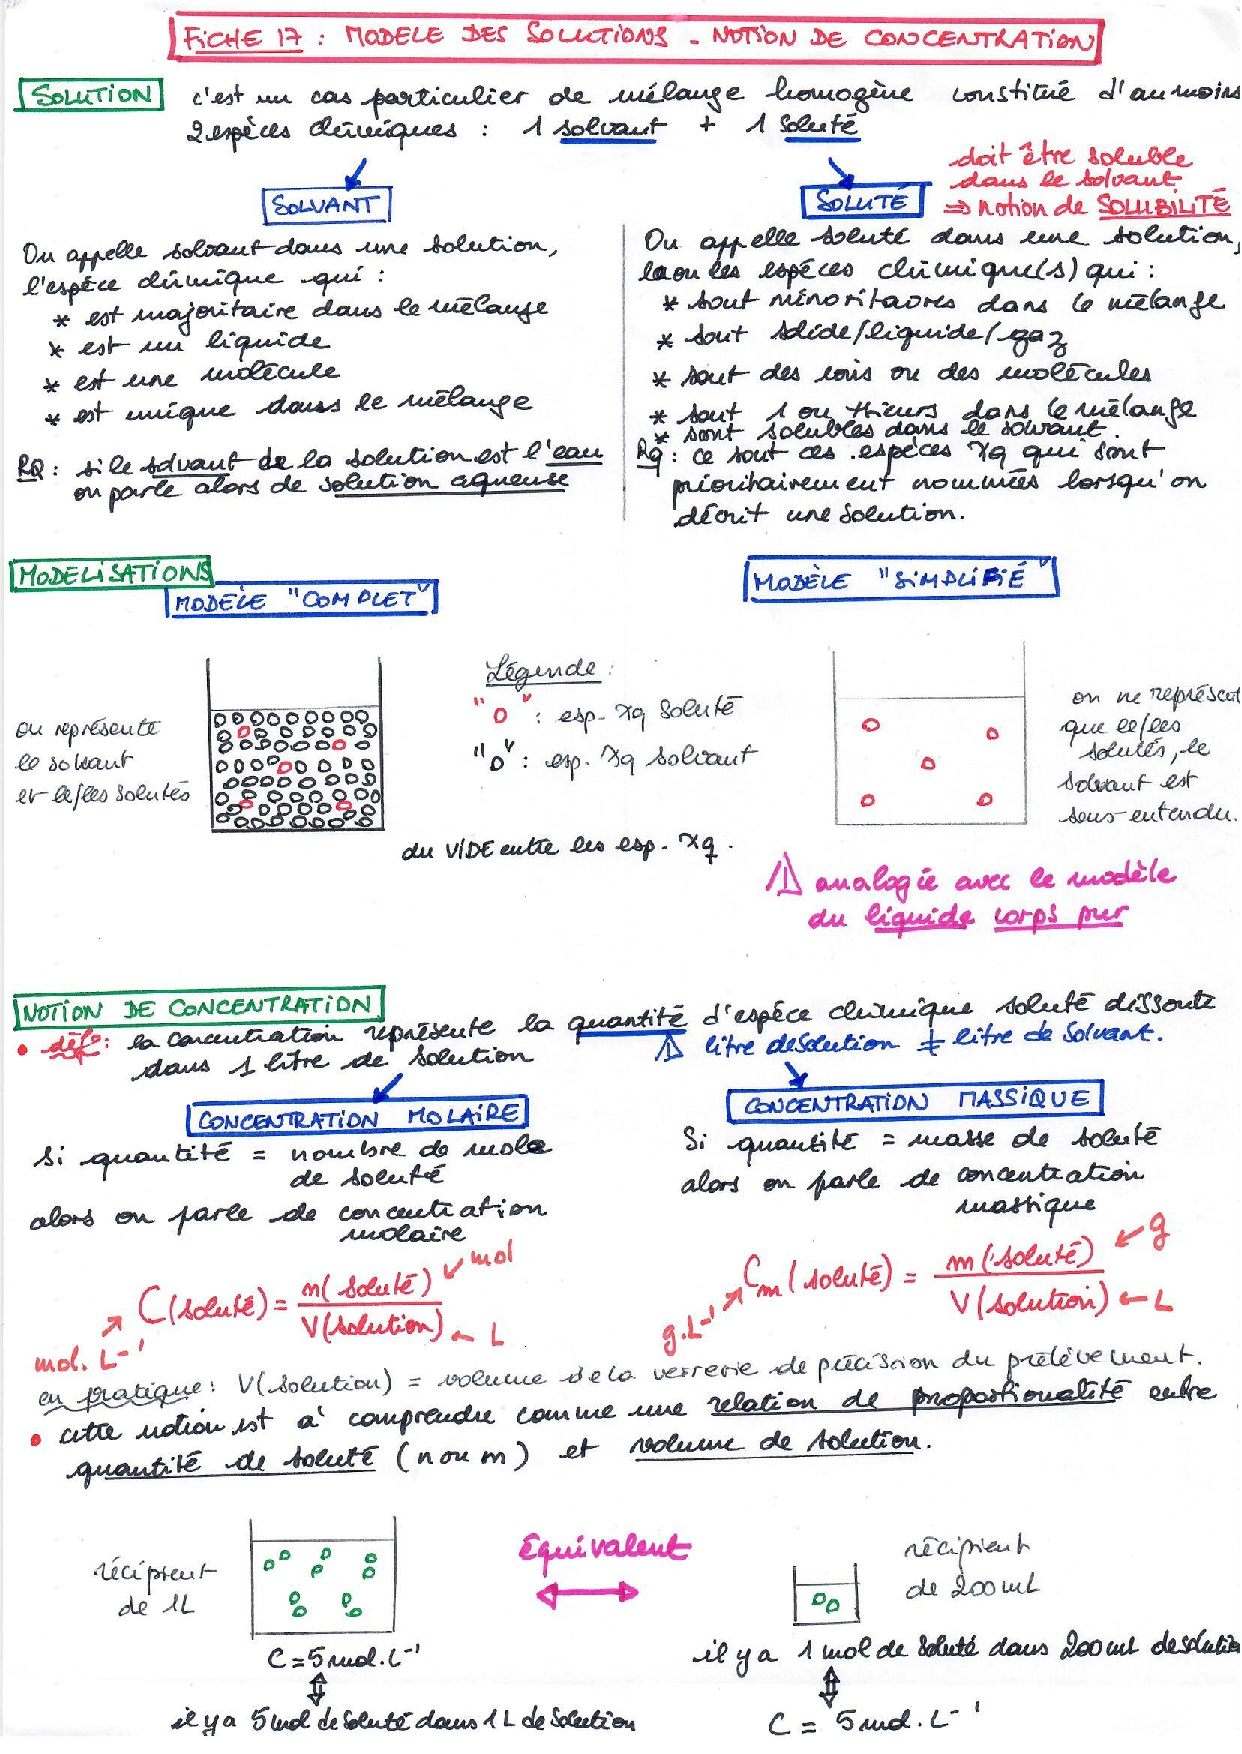 FICHE 17 : MODELE DES SOLUTIONS - NOTION DE CONCENTRATION
SOLUTION c'est un cas particulier de mélange homogène constitué d'au moins
2 espèces chimiques : 1 solvant + 1 soluté
doit être soluble
dans le solvant
⇒ notion de SOLUBILITÉ
SOLVANT
On appelle solvant dans une solution,
l'espèce chimique qui :
* est majoritaire dans le mélange
* est un liquide
* est une molécule
* est unique dans le mélange
RQ : si le solvant de la solution est l'eau
on parle alors de solution aqueuse
SOLUTÉ
On appelle soluté dans une solution,
la ou les espèces chimique(s) qui :
* sont minoritaires dans le mélange
* sont solide/liquide/gaz
* sont des ions ou des molécules
* sont 1 ou +sieurs dans le mélange
* sont solubles dans le solvant.
Rq : ce sont ces espèces χq qui sont
prioritairement nommées lorsqu'on
décrit une solution.
MODELISATIONS
MODÈLE "COMPLET"
MODÈLE "SIMPLIFIÉ"
on représente
le solvant
et le/les solutés
Légende :
"o" : esp. χq soluté
"o" : esp. χq solvant
du VIDE entre les esp. χq.
on ne représent
que le/les
solutés, le
solvant est
sous-entendu.
⚠ analogie avec le modèle
du liquide corps pur
NOTION DE CONCENTRATION
• déf° : la concentration représente la quantité d'espèce chimique soluté dissoute
dans 1 litre de solution
⚠ litre de solution ≠ litre de solvant.
CONCENTRATION MOLAIRE
Si quantité = nombre de mole
de soluté
alors on parle de concentration
molaire
C(soluté) = n(soluté) / V(solution)
mol
L
mol.L⁻¹
CONCENTRATION MASSIQUE
Si quantité = masse de soluté
alors on parle de concentration
massique
Cm(soluté) = m(soluté) / V(solution)
g
L
g.L⁻¹
en pratique : V(solution) = volume de la verrerie de précision du prélèvement.
• cette notion est à comprendre comme une relation de proportionalité entre
quantité de soluté (n ou m) et volume de solution.
récipient
de 1L
C = 5 mol.L⁻¹
il y a 5 mol de soluté dans 1 L de solution
équivalent
récipient
de 200 mL
il y a 1 mol de soluté dans 200 mL de solution
C = 5 mol.L⁻¹